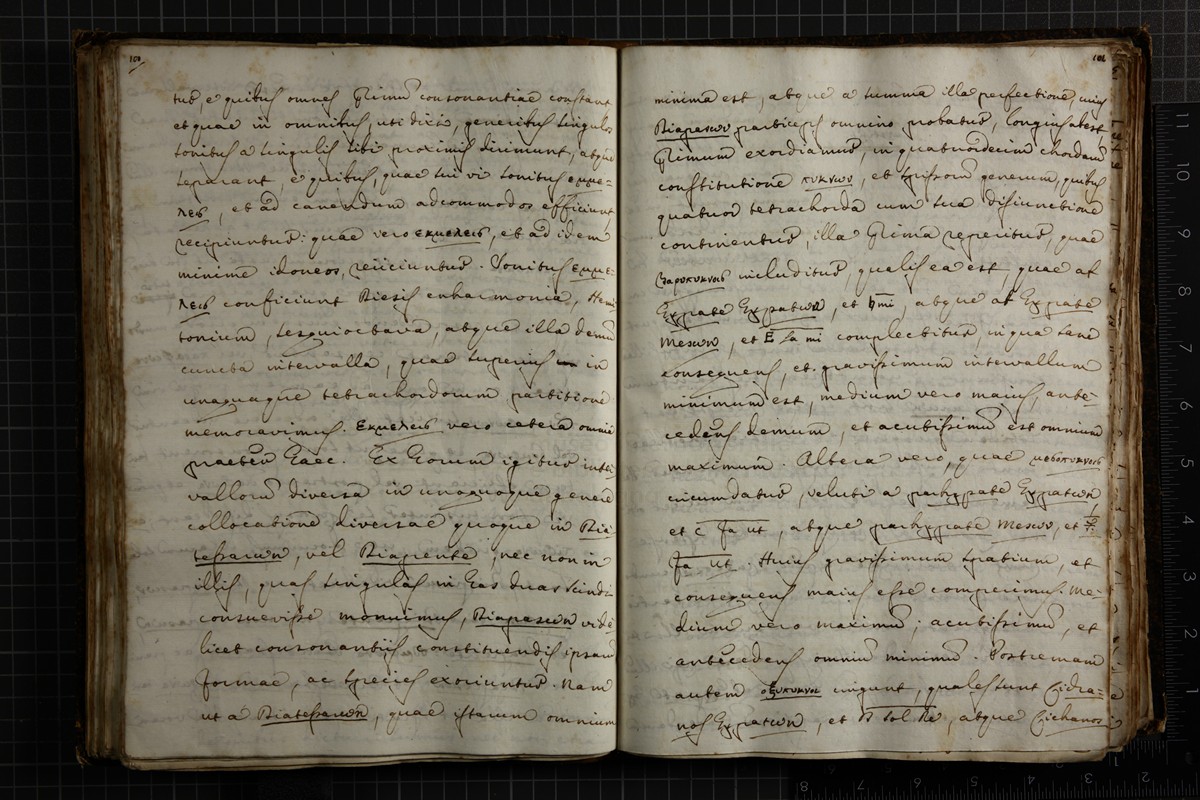 100
tus, e quibus omnes primum consonantiae constant
et quae in omnibus, uti dixi, generibus singulos
sonitus a singulis sibi proximis dirimunt, atque
separant, e quibus, quae sui vi sonitus εμμε-
λεις, et ad canendum adcommodos efficiunt
recipiuntur: quae vero εκμελεις, et ad idem
minime idoneos, reiiciuntur. Sonitus εμμε-
λεις conficiunt Diesis enharmonia, Hemi
tonium, sesquioctava, atque illa demum
cuncta intervalla, quae superius in
unaquaque tetrachordorum partitione
memoravimus. Εκμελεις vero cetera omnia
praeter haec. Ex horum igitur inter
vallorum diversa in unoquoque genere
collocatione diversae quoque in Dia
tessarωn, vel Diapente, nec non in
illis, quas singulas in has duas scindi
consuevisse monuimus, Diapasωn vide
licet consonantiis constituendis ipsarum
formae, ac species exoriuntur. Nam
ut a Diatessarωn, quae istarum omnium
101
minima est, atque a summa illa perfectione, cuius
Diapasωn particeps omnino probatur, longius abest
primum exordiamur, in quatuordecim chordarum
constitutione πυκνων, et spissorum generum, quibus
quatuor tetrachorda cum sua disiunctione
continentur, illa prima reperitur, quae
βαρυπυκνοις includitur, qualis ea est, quae ab
Hypate Hypatωn, et ♮ mi, atque ab Hypate
Mesωn, et E la mi complectitur, in qua sane
consequens, et gravissimum intervallum
minimum est, medium vero maius, ante-
cedens demum, et acutissimum est omnium
maximum. Altera vero, quae μεσοπυκνοις
circumdatur, veluti a parhypate Hypatωn
et C fa ut, atque parhypate Mesωn, et F
fa ut. Huius gravissimum spatium, et
consequens maius esse comperimus. Me-
dium vero maximum; acutissimum, et
antecedens omnium minimum. Postremam
autem οξυπυκνοι cingunt, quales sunt Licha-
nos Hypatωn, et D sol re, atque Lichanos